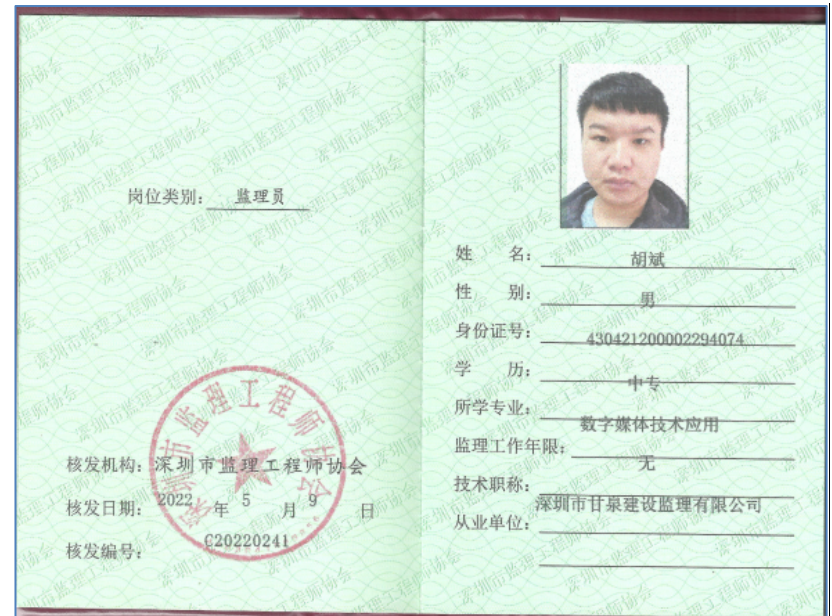 岗位类别: 监理员
核发机构: 深圳市监理工程师协会
核发日期: 2022 年 5 月 9 日
核发编号: C20220241
深圳市监理工程师协会
姓 名: 胡斌
性 别: 男
身份证号: 430421200002294074
学 历: 中专
所学专业: 数字媒体技术应用
监理工作年限: 无
技术职称:
从业单位: 深圳市甘泉建设监理有限公司
深圳市监理工程师协会